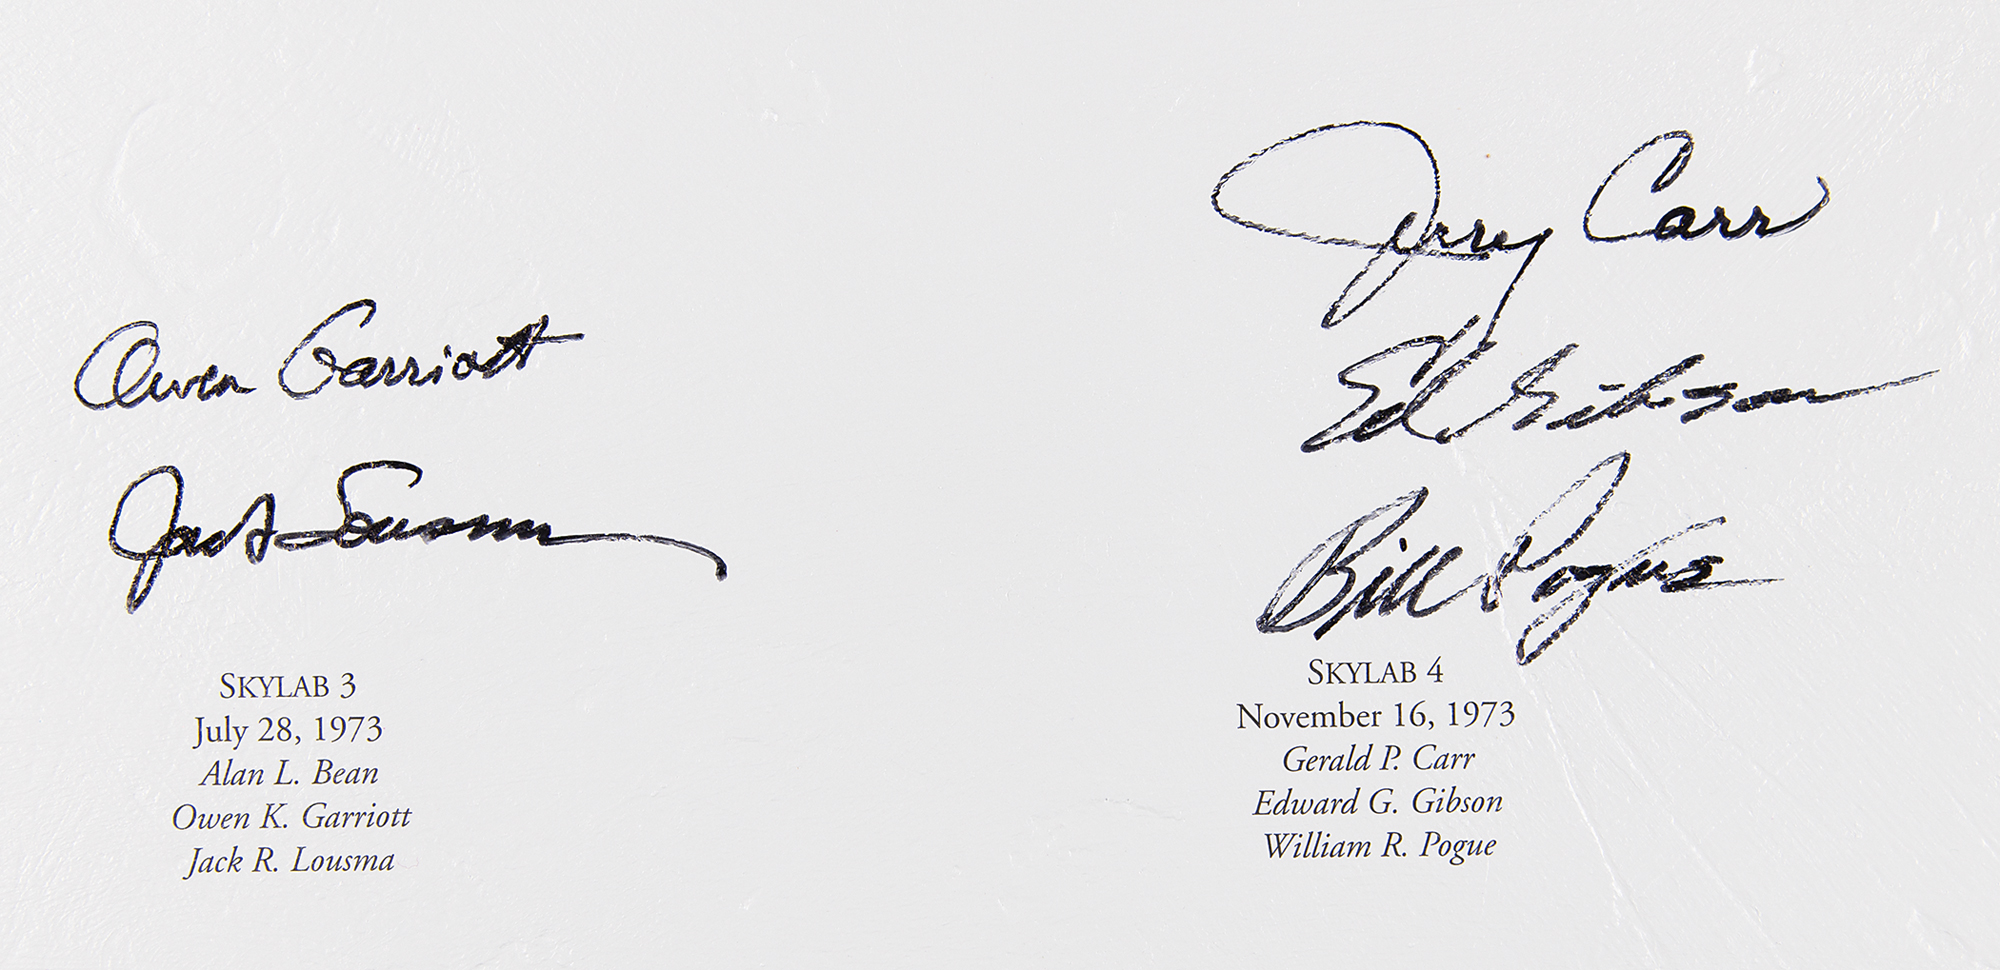 Owen Garriott
Jack Lousma
SKYLAB 3
July 28, 1973
Alan L. Bean
Owen K. Garriott
Jack R. Lousma
Jerry Carr
Ed Gibson
Bill Pogue
SKYLAB 4
November 16, 1973
Gerald P. Carr
Edward G. Gibson
William R. Pogue